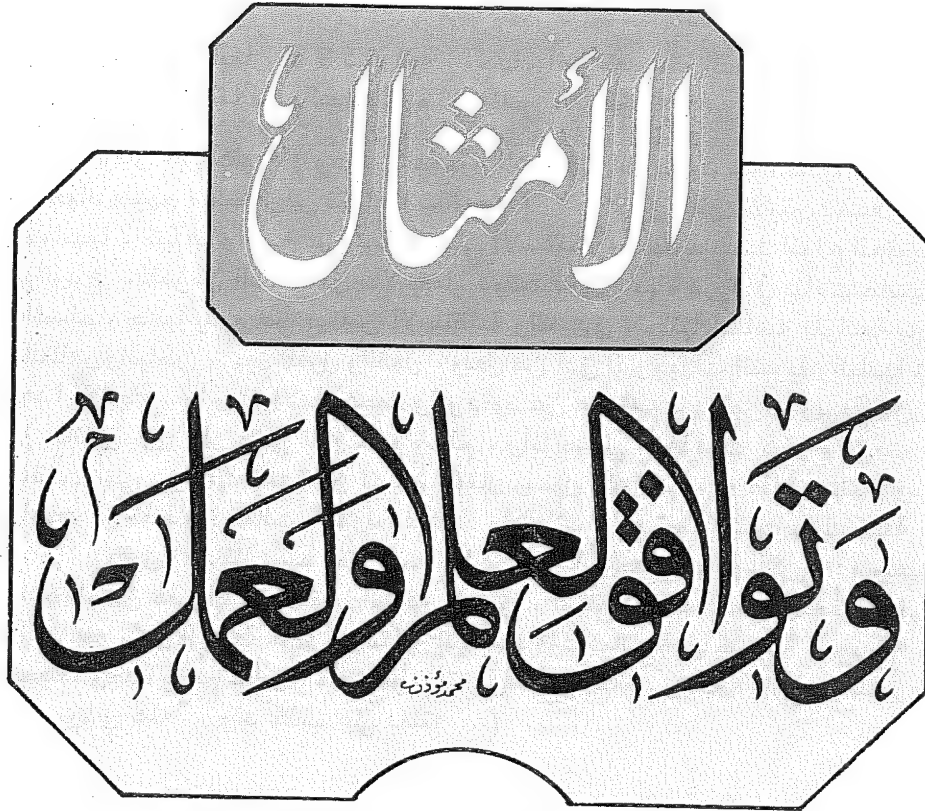 الأمثال
وتوافق العلم والعمل
محمد مؤذن